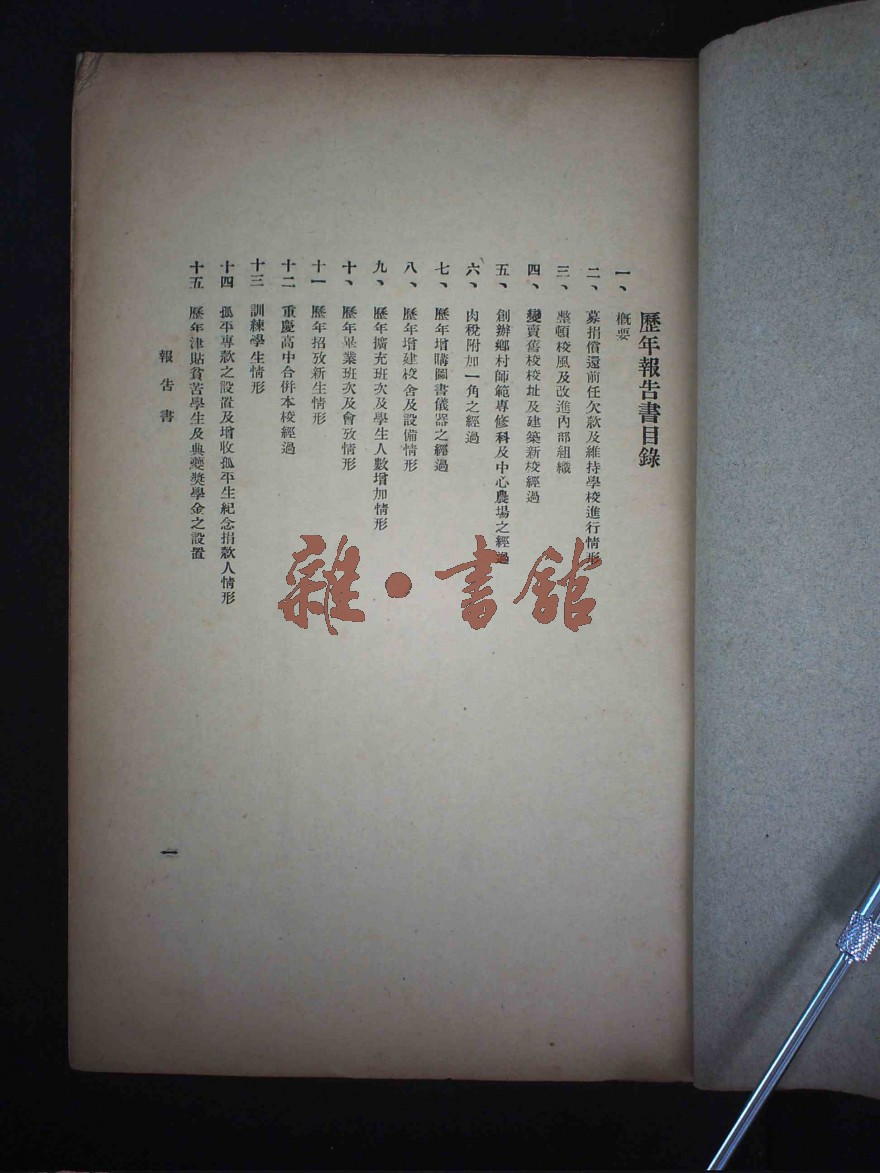 歷年報告書目錄
一、概要
二、募捐償還前任欠款及維持學校進行情形
三、整頓校風及改進內部組織
四、變賣舊校校址及建築新校經過
五、創辦鄉村師範專修科及中心農場之經過
六、肉稅附加一角之經過
七、歷年增購圖書儀器之經過
八、歷年增建校舍及設備情形
九、歷年擴充班次及學生人數增加情形
十、歷年畢業班次及會攷情形
十一 歷年招攷新生情形
十二 重慶高中合併本校經過
十三 訓練學生情形
十四 孤平專款之設置及增收孤平生紀念捐款人情形
十五 歷年津貼貧苦學生及典夔獎學金之設置
報告書
一
雜·書館